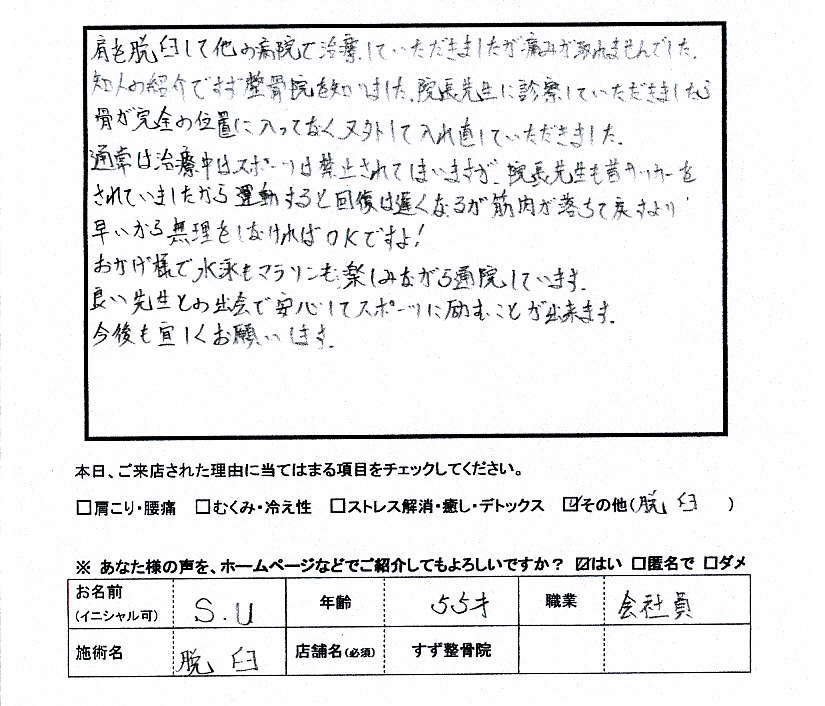 肩を脱臼して他の病院で治療していただきましたが痛みが取れませんでした。
知人の紹介ですず整骨院を知りました。院長先生に診察していただきましたら
骨が完全の位置に入ってなく又外して入れ直していただきました。
通常は治療中はスポーツは禁止されてしまいますが、院長先生も昔サッカーを
されていましたから運動すると回復は遅くなるが筋肉が落ちて戻すより
早いから無理をしなければOKですよ!
おかげ様で水泳もマラソンも楽しみながら通院しています。
良い先生との出会で安心してスポーツに励むことが出来ます。
今後も宜しくお願いします。
本日、ご来店された理由に当てはまる項目をチェックしてください。
□肩こり・腰痛 □むくみ・冷え性 □ストレス解消・癒し・デトックス ☑その他(脱臼)
※ あなた様の声を、ホームページなどでご紹介してもよろしいですか? ☑はい □匿名で □ダメ
お名前(イニシャル可) S.U 年齢 55才 職業 会社員
施術名 脱臼 店舗名(必須) すず整骨院